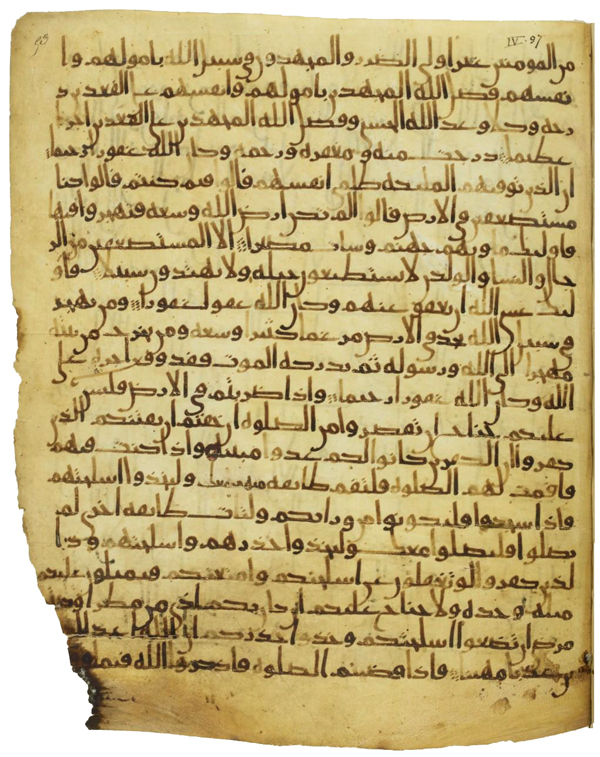 IV-97
من المومنين غير اولي الضرر والمجهدون في سبيل الله بامولهم وا
نفسهم فضل الله المجهدين بامولهم وانفسهم على القعدين د
رجة وكلا وعد الله الحسنى وفضل الله المجهدين على القعدين اجرا
عظيما درجت منه ومغفرة ورحمة وكان الله غفورا رحيما
ان الذين توفيهم الملئكة ظلمي انفسهم قالوا فيم كنتم قالوا كنا
مستضعفين في الارض قالوا الم تكن ارض الله وسعة فتهجروا فيها
فاوليك ماويهم جهنم وسات مصيرا الا المستضعفين من الر
جال والنسا والولدن لا يستطيعون حيلة ولا يهتدون سبيلا فاو
ليك عسى الله ان يعفو عنهم وكان الله عفوا غفورا ومن يهجر
في سبيل الله يجد في الارض مرغما كثيرا وسعة ومن يخرج من بيته
مهجرا الى الله ورسوله ثم يدركه الموت فقد وقع اجره على
الله وكان الله غفورا رحيما واذا ضربتم في الارض فليس
عليكم جناح ان تقصروا من الصلوة ان خفتم ان يفتنكم الذين
كفروا ان الكفرين كانوا لكم عدوا مبينا واذا كنت فيهم
فاقمت لهم الصلوة فلتقم طايفة منهم معك وليخذوا اسلحتهم
فاذا سجدوا فليكونوا من ورايكم ولتات طايفة اخرى لم
يصلوا فليصلوا معك وليخذوا حذرهم واسلحتهم ود ا
لذين كفروا لو تغفلون عن اسلحتكم وامتعتكم فيميلون عليكم
ميلة وحدة ولا جناح عليكم ان كان بكم اذى من مطر او كنتم
مرضى ان تضعوا اسلحتكم وخذوا حذركم ان الله اعد للك
فرين عذابا مهينا فاذا قضيتم الصلوة فاذكروا الله قيما و